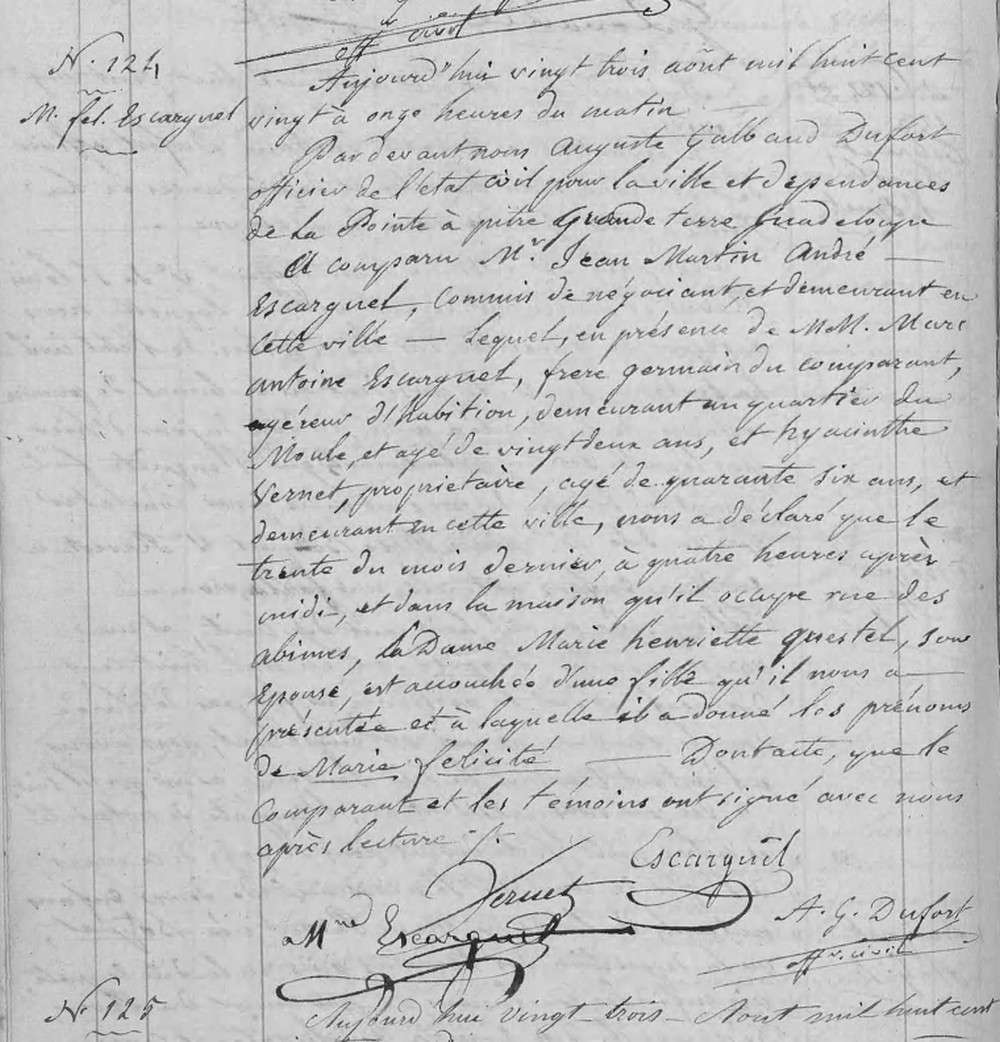 off civil
N. 124
M. fel. Escarguel
Aujourd'hui vingt trois août mil huit cent
vingt à onze heures du matin
Pardevant nous Auguste Galbaud Dufort
officier de l'état civil pour la ville et dependances
de la Pointe à pitre Grande terre Guadeloupe
A comparu Mr. Jean Martin André —
Escarguel, Commis de négociant, et demeurant en
cette ville — Lequel, en présence de MM. Marc
antoine Escarguel, frere germain du comparant,
géreur d'habition, demeurant au quartier du
Moule, et agé de vingt deux ans, et hyacinthe
Vernet, propriétaire, agé de quarante six ans, et
demeurant en cette ville, nous a déclaré que le
trente du mois dernier, à quatre heures après
midi, et dans la maison qu'il occupe rue des
abimes, la Dame Marie henriette Questel, son
Epouse, est accouchée d'une fille qu'il nous a —
présentée et à laquelle il a donné les prénoms
de Marie felicité — Dont acte, que le
Comparant et les témoins ont signé avec nous
après lecture
Escarguel
Vernet
Escarguel
A. G. Dufort
offr. civil
N. 125
Aujourd'hui vingt-trois — Aout mil huit cent